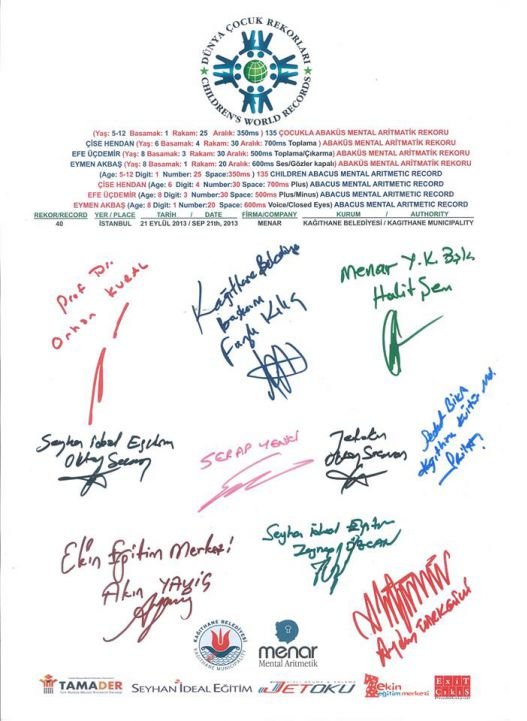 DÜNYA ÇOCUK REKORLARI
CHILDREN'S WORLD RECORDS
(Yaş: 5-12 Basamak: 1 Rakam: 25 Aralık: 350ms ) 135 ÇOCUKLA ABAKÜS MENTAL ARİTMATİK REKORU
ÇİSE HENDAN (Yaş: 6 Basamak: 4 Rakam: 30 Aralık: 700ms Toplama ) ABAKÜS MENTAL ARİTMATİK REKORU
EFE ÜÇDEMİR (Yaş: 8 Basamak: 3 Rakam: 30 Aralık: 500ms Toplama/Çıkarma) ABAKÜS MENTAL ARİTMATİK REKORU
EYMEN AKBAŞ (Yaş: 8 Basamak: 1 Rakam: 20 Aralık: 600ms Ses/Gözler kapalı) ABAKÜS MENTAL ARİTMATİK REKORU
(Age: 5-12 Digit: 1 Number: 25 Space:350ms ) 135 CHILDREN ABACUS MENTAL ARITMETIC RECORD
ÇİSE HENDAN (Age: 6 Digit: 4 Number:30 Space: 700ms Plus) ABACUS MENTAL ARITMETIC RECORD
EFE ÜÇDEMİR (Age: 8 Digit: 3 Number: 30 Space: 500ms Plus/Minus) ABACUS MENTAL ARITMETIC RECORD
EYMEN AKBAŞ (Age: 8 Digit: 1 Number:20 Space: 600ms Voice/Closed Eyes) ABACUS MENTAL ARITMETIC RECORD
REKOR/RECORD YER / PLACE TARİH / DATE FİRMA/COMPANY KURUM / AUTHORITY
40 İSTANBUL 21 EYLÜL 2013 / SEP 21th, 2013 MENAR KAĞITHANE BELEDİYESİ / KAGITHANE MUNICIPALITY
Prof Dr.
Orhan KURAL
Kağıthane Belediye
başkanı
Fazlı Kılıç
Menar Y.K. Bşk
Halit Şen
Seyhan ideal Eğitim
Oktay
SERAP YENİCİ
Jetoku
Oktay
Sedat
Kağıthane Kültür Md.
Seyhan ideal Eğitim
Zeynep ÖZCAN
Ekin Eğitim Merkezi
Akın YAYIŞ
Aydın
KAĞITHANE BELEDİYESİ
KAGITHANE MUNICIPALITY
menar
Mental Aritmetik
TAMADER
SEYHAN İDEAL EĞİTİM
JETOKU
ekin
eğitimmerkezi
EXiT
ÇIKIŞ